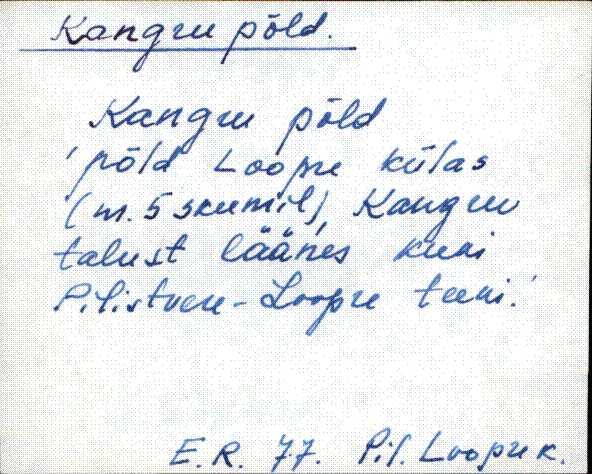 Kangru põld.
Kangru põld
'põld Loopre külas
(m. 5 skeemil) Kangru
talust läänes kuni
Pilistvere-Loopre teeni.'
E.R. 77. Pil. Loopre k.